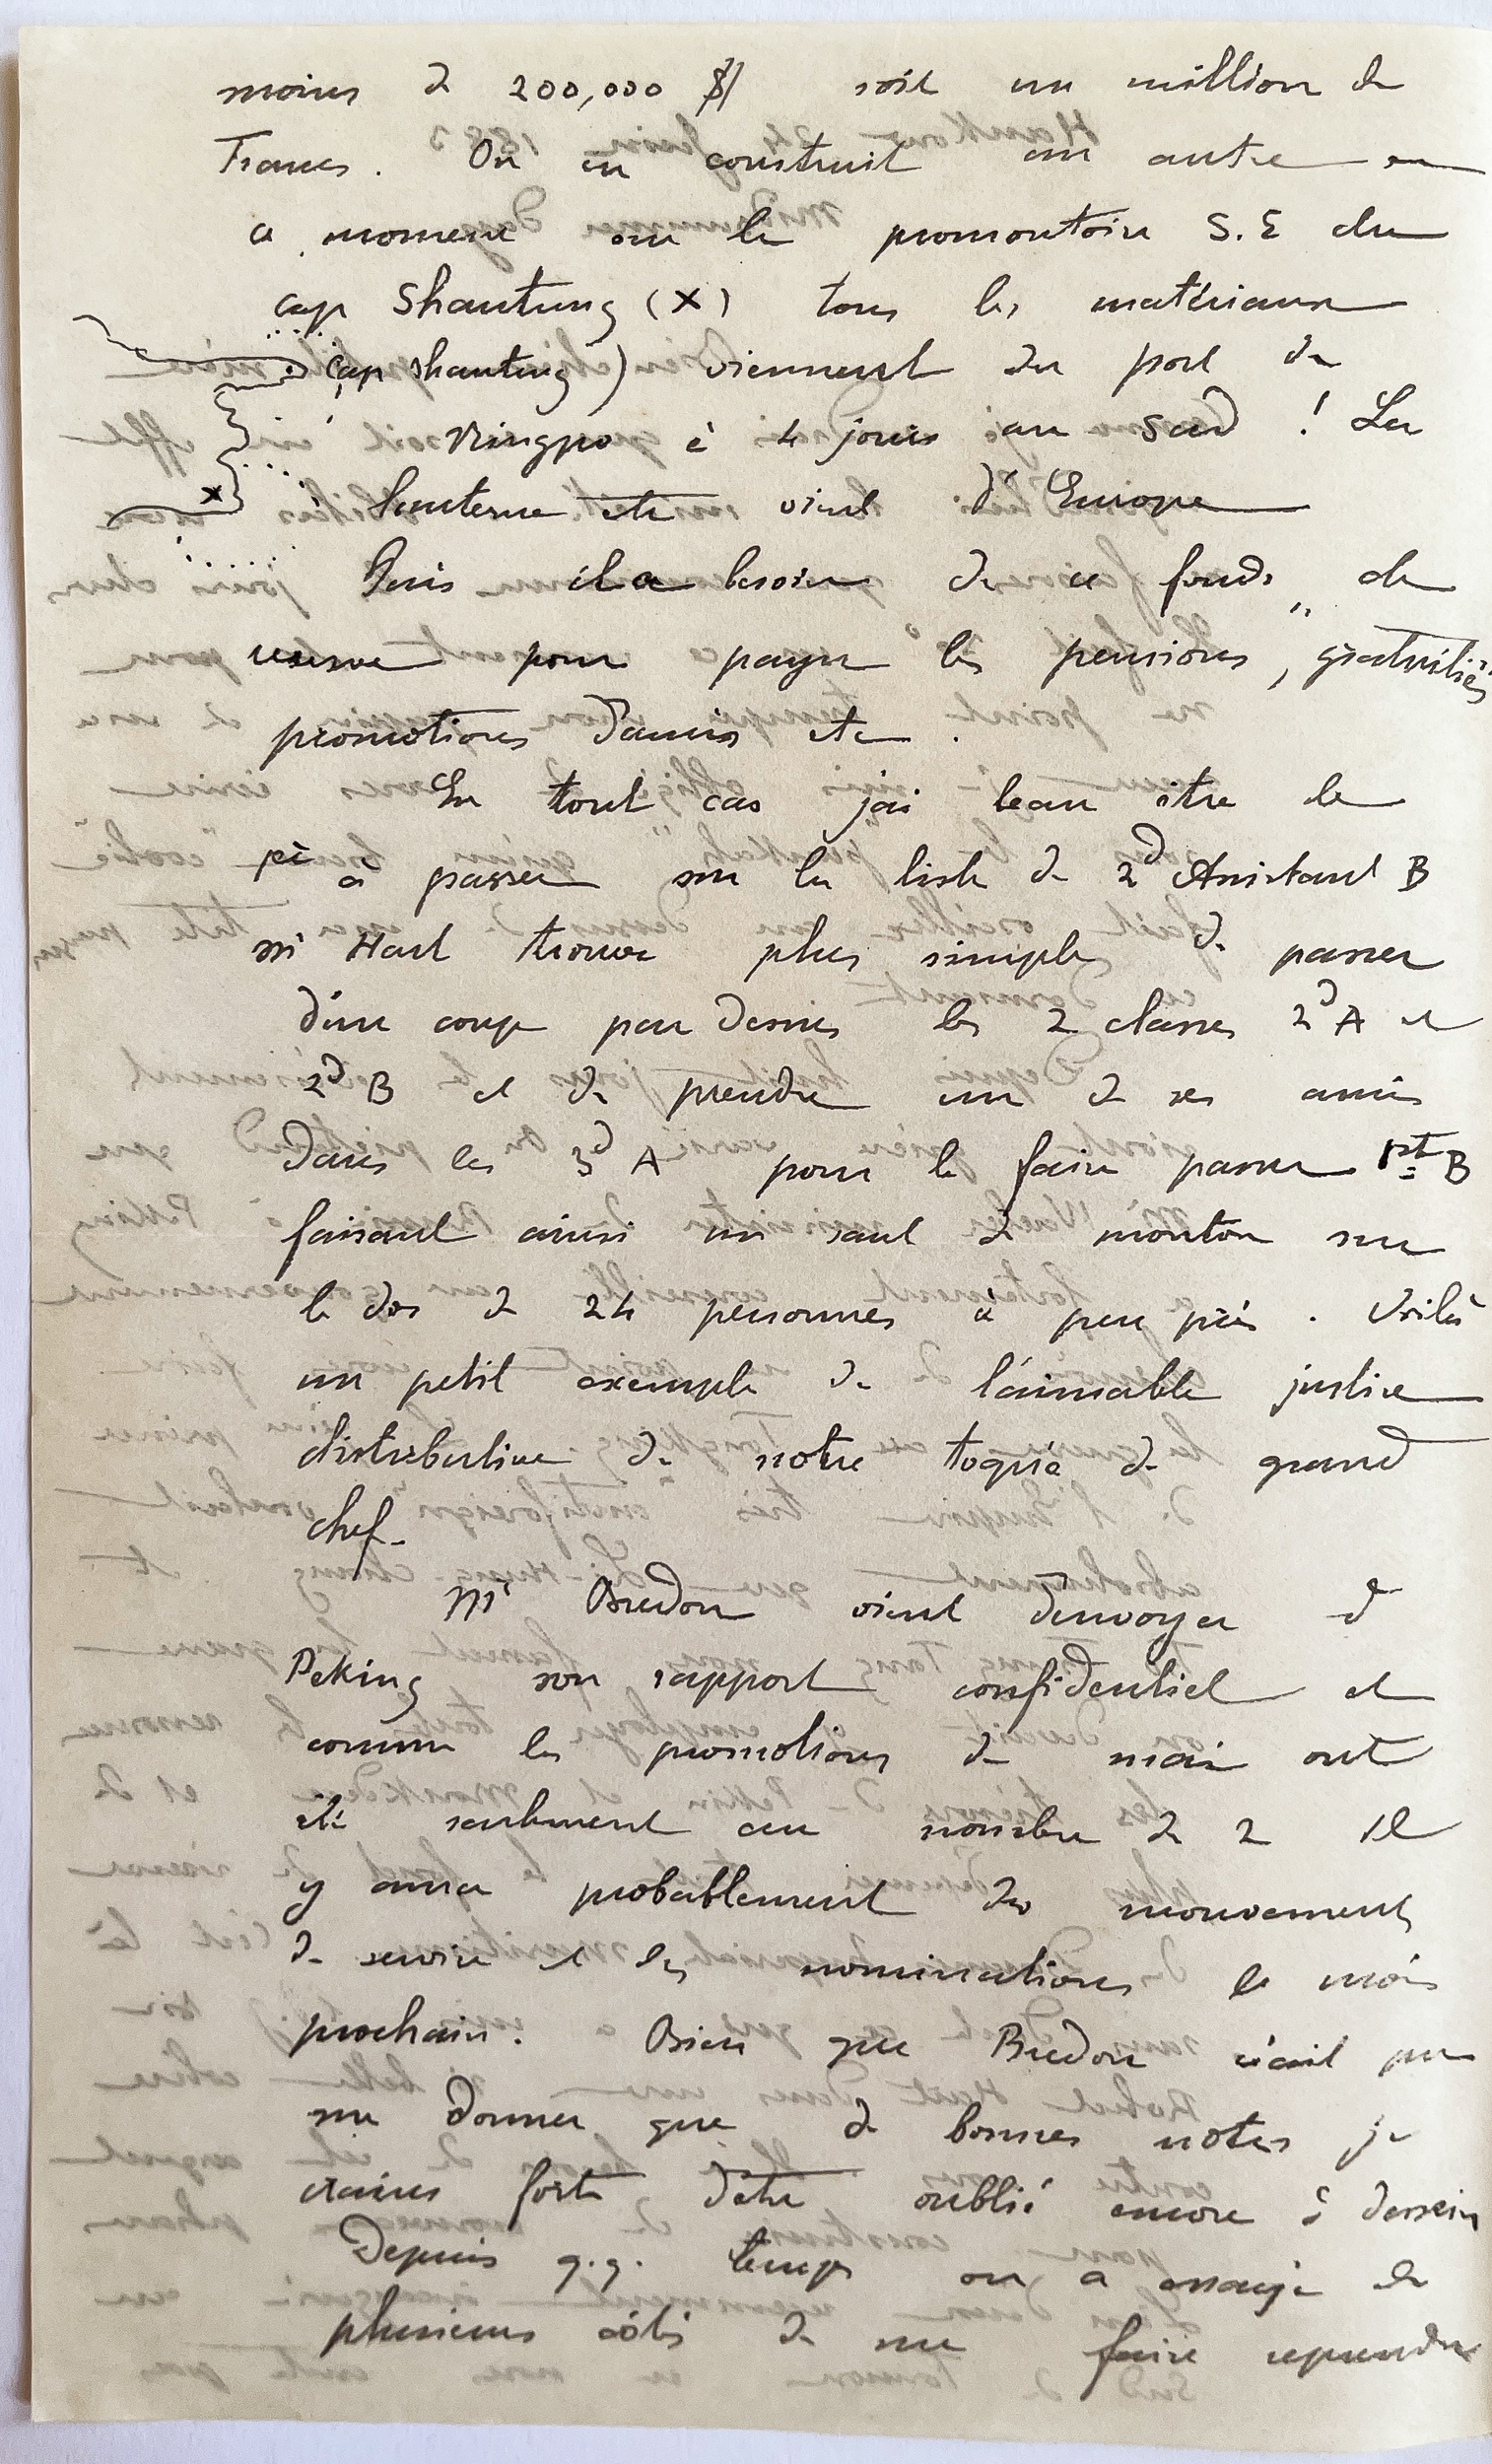 moins de 200,000 $ soit un million de
Francs. On en construit un autre en
ce moment sur le promontoire S.E du
cap Shantung (X) tous les matériaux
cap shantung) viennent du port de
Ningpo à 4 jours au Sud ! La
lanterne etc vient d'Europe
Puis il a besoin de ce fonds de
reserve pour payer les pensions, gratuités
promotions d'amis etc.
En tout cas j'ai beau être le
pr à passer sur la liste de 2d Assistant B
Mr Hart trouve plus simple de passer
d'un coup par dessus les 2 classes 2d A et
2d B et de prendre un de ses amis
dans les 3d A pour le faire passer 1st B
faisant ainsi un saut de mouton sur
le dos de 24 personnes à peu près. Voilà
un petit exemple de l'aimable justice
distributive de notre toqué de grand
chef.
Mr Bredon vient d'envoyer à
Peking son rapport confidentiel et
comme les promotions de mai ont
été seulement au nombre de 2 il
y aura probablement des mouvements
de service et des nominations le mois
prochain. Bien que Bredon n'ait pu
me donner que de bonnes notes je
crains fort d'etre oublié encore à dessein
Depuis q.q. temps on a essayé de
plusieurs côtés de me faire reprendre